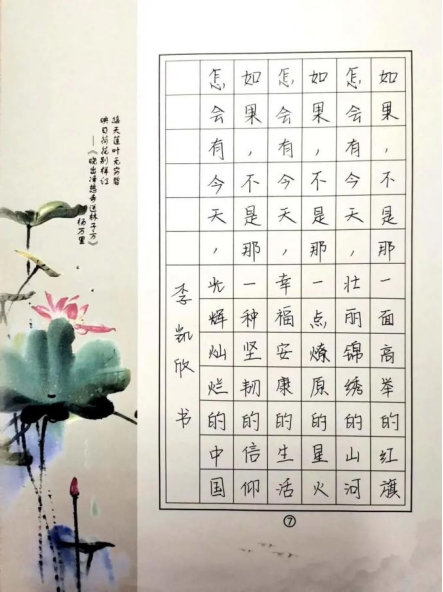 如果，不是那一面高举的红旗
怎会有今天，壮丽锦绣的山河
如果，不是那一点燎原的星火
怎会有今天，幸福安康的生活
如果，不是那一种坚韧的信仰
怎会有今天，光辉灿烂的中国
李凯欣书
接天莲叶无穷碧
映日荷花别样红
——《晓出净慈寺送林子方》
杨万里
⑦